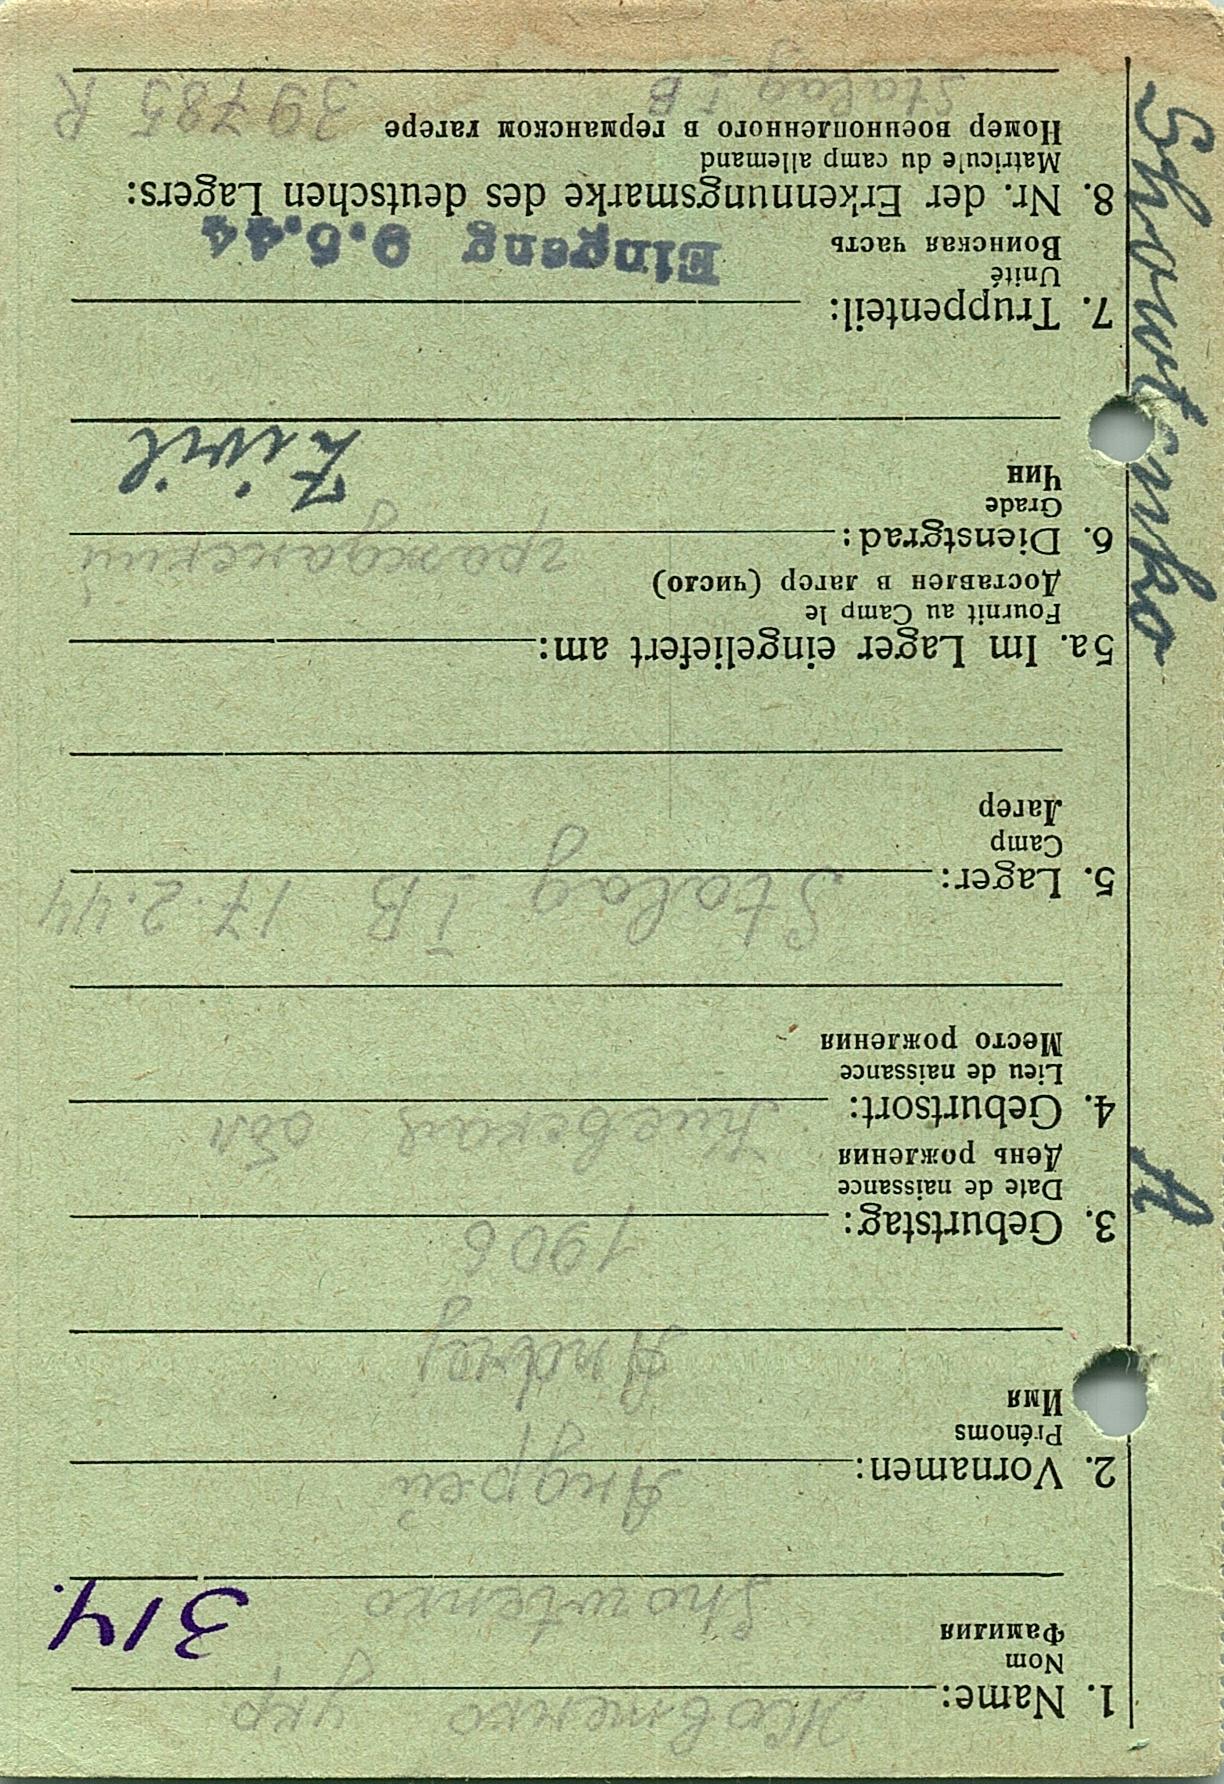 1. Name: Жовтенко укр
Nom
Фамилия
Showtenko
314.
2. Vornamen: Андрей
Prénoms
Имя
Andrej
3. Geburtstag: 1906
Date de naissance
День рождения
4. Geburtsort: Киевская обл
Lieu de naissance
Место рождения
5. Lager: Stalag I B 17.2.44
Camp
Лагер
5a. Im Lager eingeliefert am:
Fournit au Camp le
Доставлен в лагер (число)
6. Dienstgrad: гражданский
Grade
Чин
Zivil
7. Truppenteil:
Unité
Воинская часть
Eingang 9.6.44
8. Nr. der Erkennungsmarke des deutschen Lagers:
Matricule du camp allemand
Номер военнопленного в германском лагере
Stalag I B 39785 R
A
Showtenko